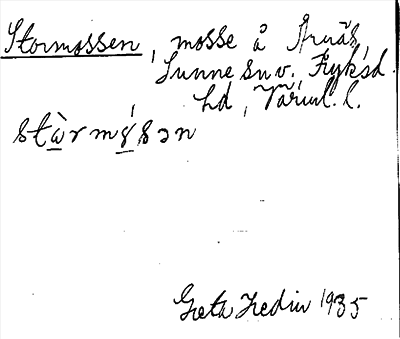 Stormossen, mosse å Årnäs,
Sunne sn v. Fryksd.
hd, Värml. l.
stàrmósən
Greta Hedin 1935